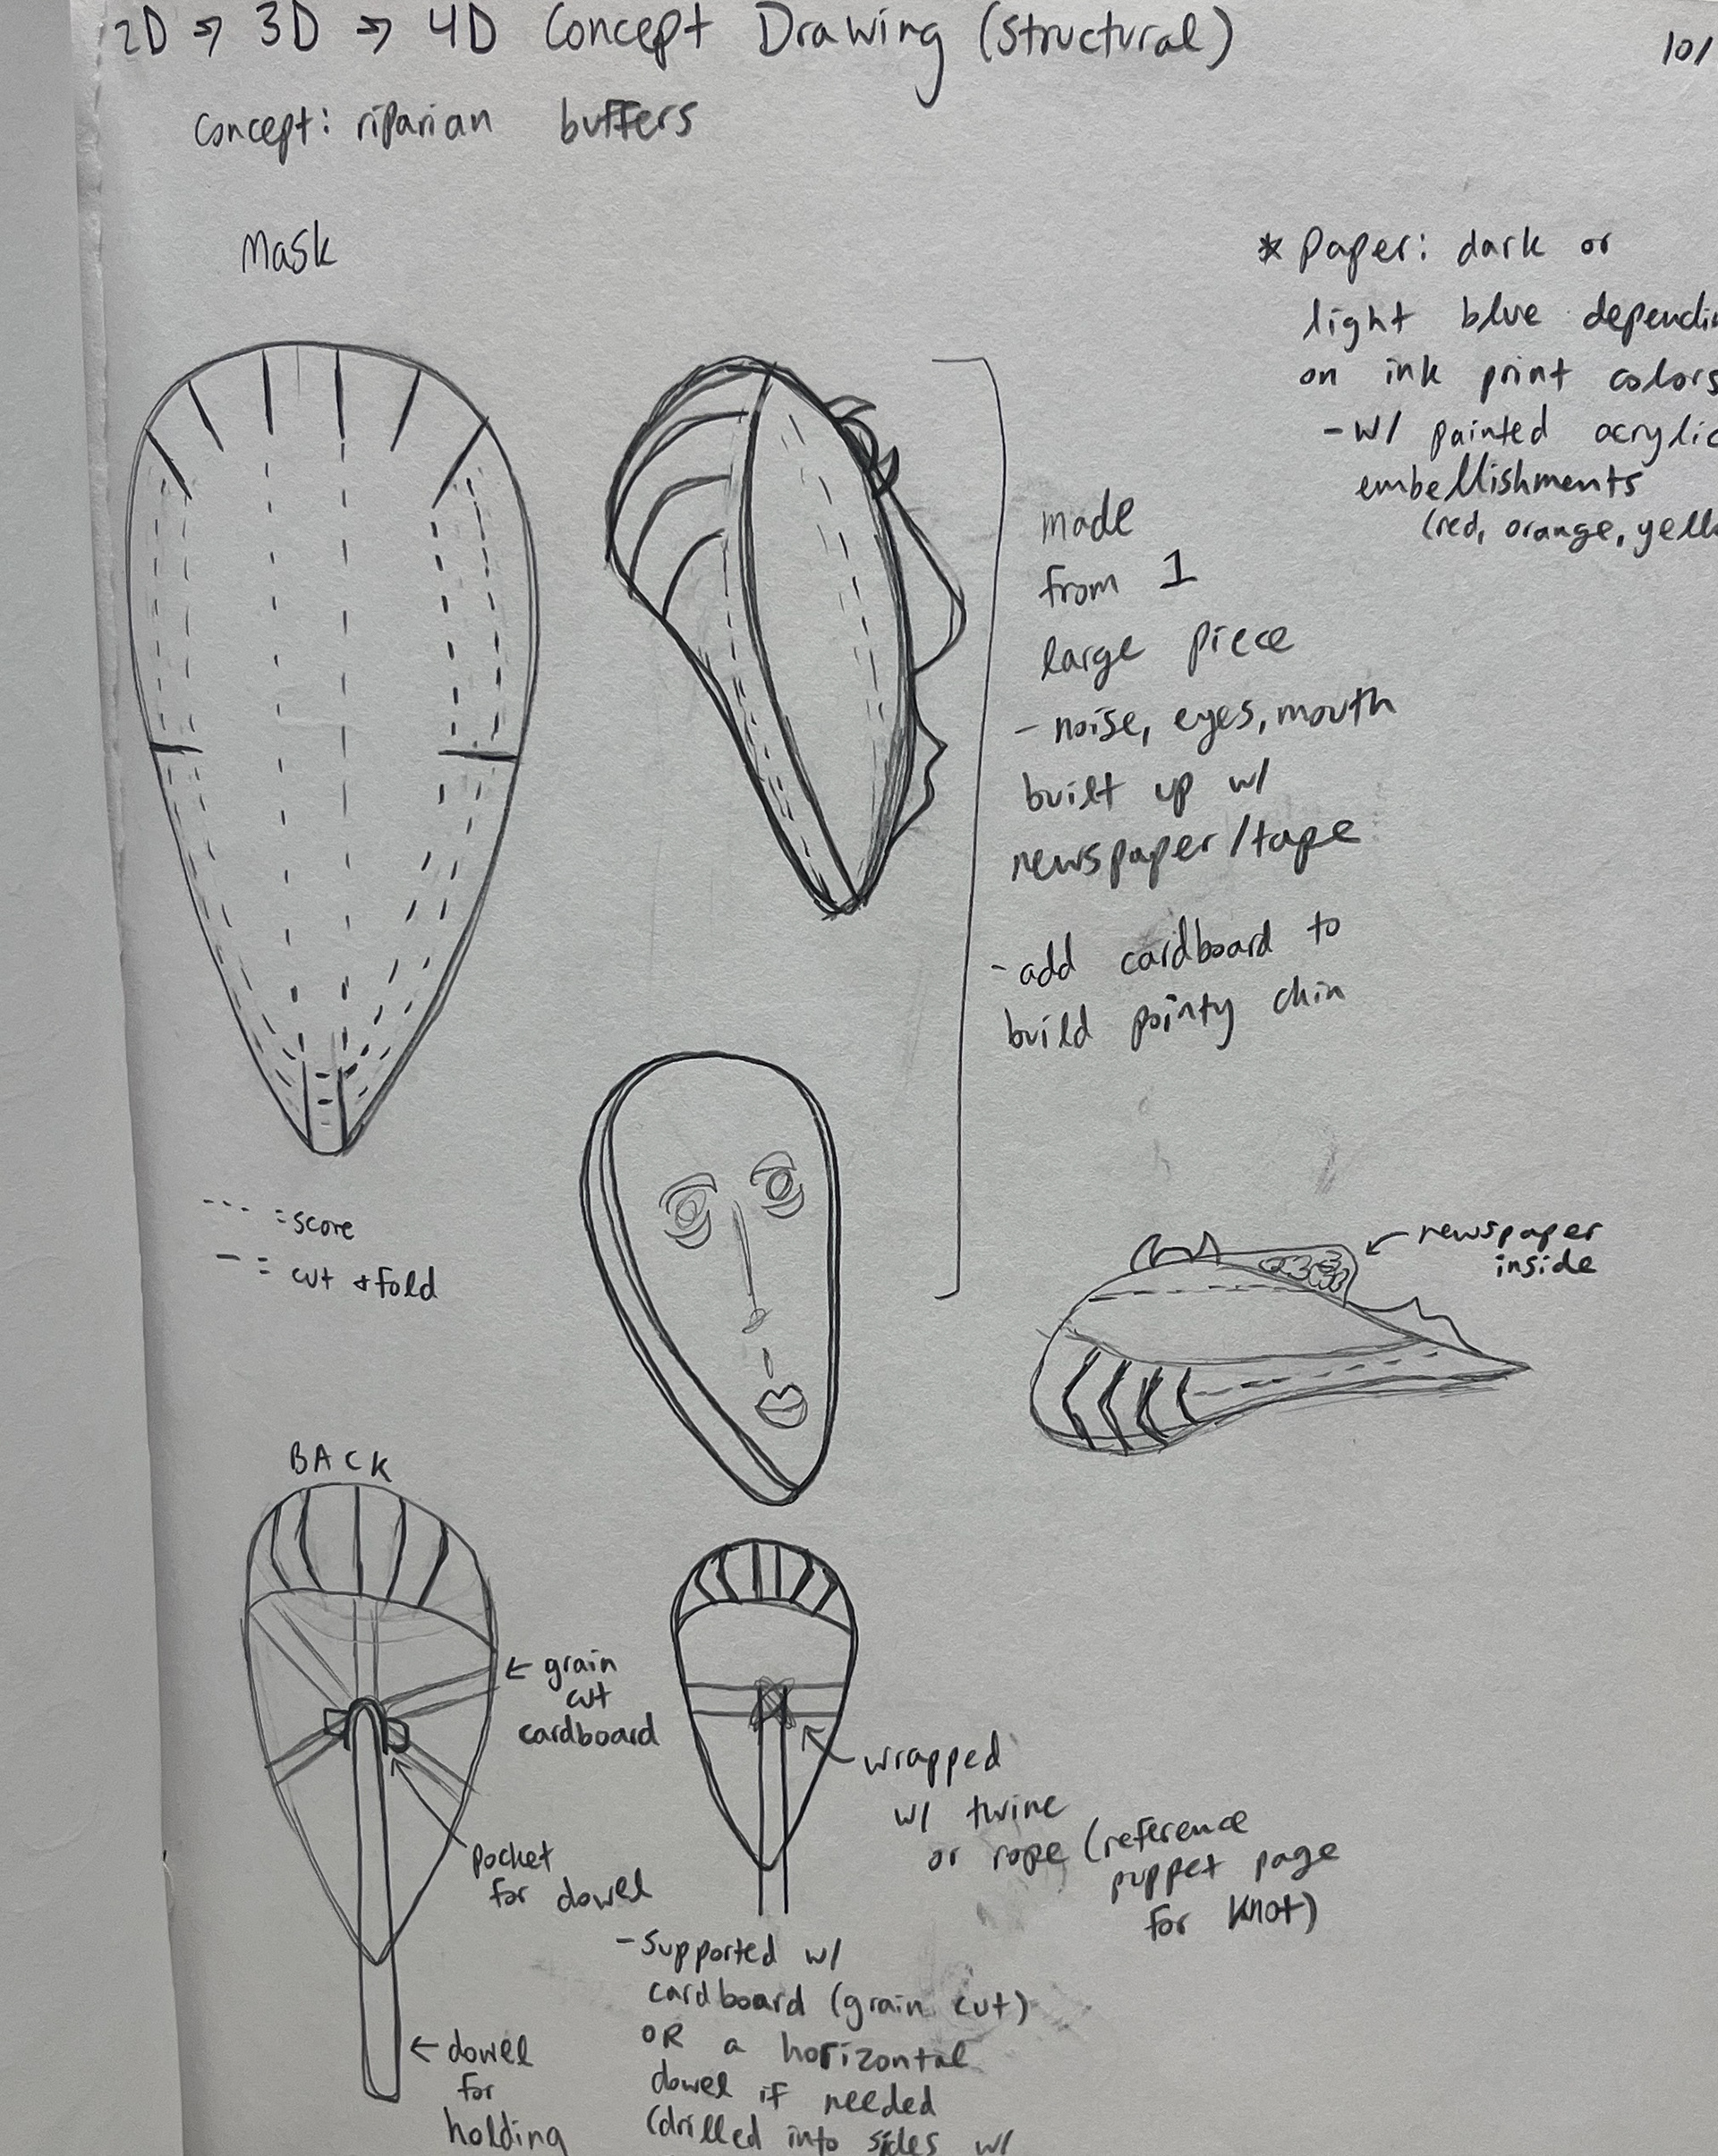 2D => 3D => 4D Concept Drawing (structural)
10/
Concept: riparian buffers
Mask
* Paper: dark or
light blue
on ink print colors
- w/ painted
embellishments
(red, orange,
made
from 1
large piece
- noise, eyes, mouth
built up w/
newspaper/tape
- add cardboard to
build pointy chin
--- = score
- = cut & fold
newspaper
inside
BACK
grain
cut
cardboard
pocket
for dowel
wrapped
w/ twine
or rope (reference
puppet page
for knot)
- supported w/
cardboard (grain cut)
OR a horizontal
dowel if needed
(drilled into sides w/
dowel
for
holding